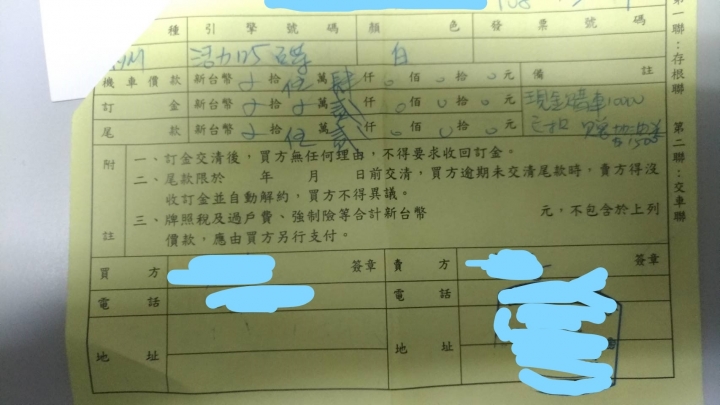 108
種 引擎號碼 顏色 發票號碼
活力125 白
機車價款 新台幣 拾伍萬肆仟0佰0拾0元 備註
訂金 新台幣 拾 萬貳仟0佰0拾0元 現金購車
尾款 新台幣 拾伍萬貳仟0佰0拾0元 已扣
附註
一、訂金交清後,買方無任何理由,不得要求收回訂金。
二、尾款限於 年 月 日前交清,買方逾期未交清尾款時,賣方得沒
收訂金並自動解約,買方不得異議。
三、牌照稅及過戶費、強制險等合計新台幣 元,不包含於上列
價款,應由買方另行支付。
買方 簽章 賣方 簽章
電話 電話
地址 地址
第一聯:存根聯 第二聯:交車聯